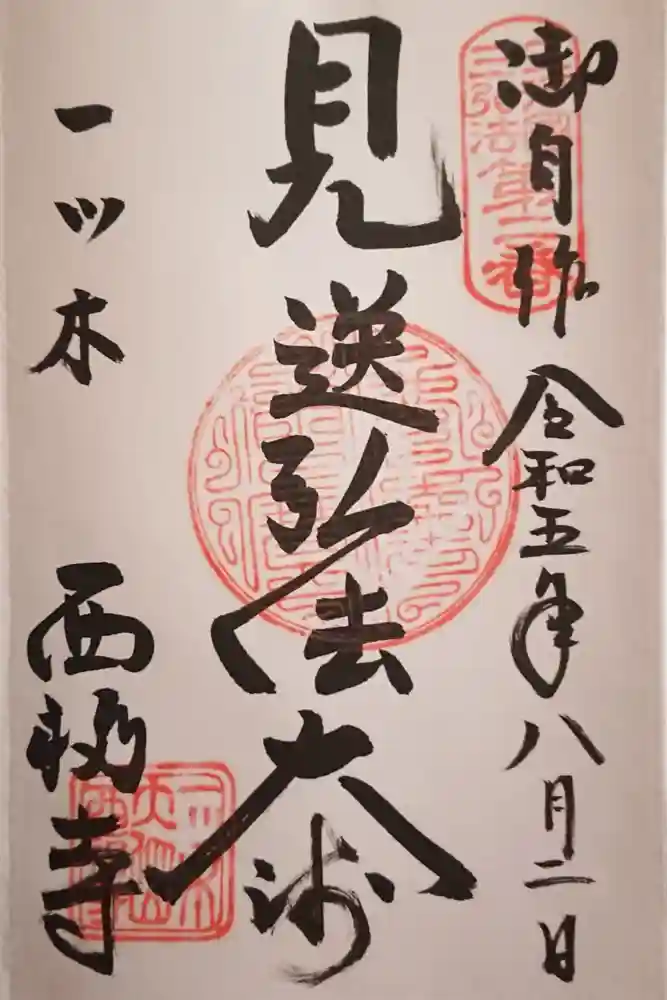 御自作 令和五年八月二日
見送弘法大師
一ツ木 西福寺